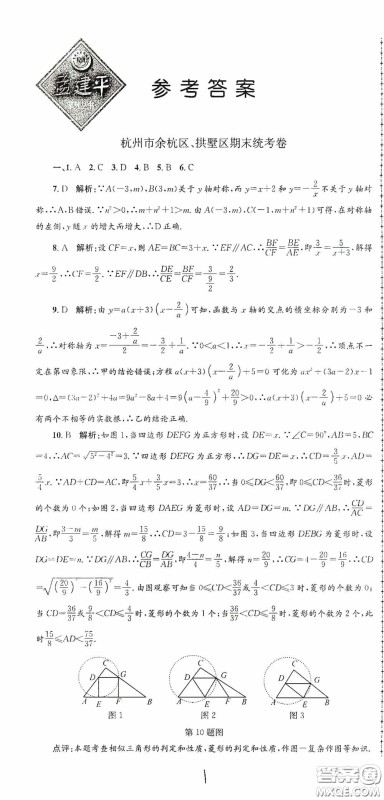 孟建平
参考答案
杭州市余杭区、拱墅区期末统考卷
一、1. A 2. C 3. D 4. B 5. B 6. C
7. D 解析:∵A(-3,m),B(3,m)关于y轴对称,而y=x+2和y=-2/x不关于y轴对
称,∴A、B错误.∵n²>0,∴m+n²+1>m.由A(-3,m),C(-1,m+n²+1)可知,在对称轴
的左侧,y随x的增大而增大,∴C错误.
8. A 解析:设CF=x,则AE=BC=3+x.∵EF∥AC,∴BF/CF=BE/AE,即3/x=5/(x+3),解得
x=9/2,∴CF=9/2.∵EF∥DB,∴DE/CE=BF/CF=3/(9/2)=2/3.
9. D 解析:由y=a(x+3)(x-2/a)可知,函数与x轴的交点的横坐标分别为-3和
2/a,∴对称轴为x=(-3+2/a)/2=-3/2+1/a.∵0<a<1,∴x=-3/2+1/a>-3/2+1,∴顶点不一
定在第四象限,∴甲的结论错误;方程a(x+3)(x-2/a)+5=0可化为ax²+(3a-2)x-1
=0,Δ=(3a-2)²+4a=9a²-8a+4=9(a-4/9)²+20/9>0,∴a(x+3)(x-2/a)+5=0必
有两个不相等的实数根,∴乙的结论正确.
10. B 解析:如图1,当四边形DEFG为正方形时,设DE=x.∵∠C=90°,AB=5,BC
=4,∴AC=√(5²-4²)=3.∵DG∥AB,∴△CDG∽△CAB,∴DG=DE=x,∴CD=3/5x,AD=
5/4x.∵AD+CD=AC,即5/4x+3/5x=3,∴x=60/37,∴CD=3/5x=36/37,∴当0≤CD<36/37时,菱形
的个数为0个;如图2,当四边形DAEG为菱形时,设AD=DG=m.∵DG∥AB,∴CD/AC=
DG/AB,即(3-m)/3=m/5,解得m=15/8,∴CD=3-15/8=9/8;如图3,当四边形DEBG为菱形时,设
DG=DE=n.∵DG∥AB,∴CG/CB=DG/AB,即(4-n)/4=n/5,解得n=20/9,∴CG=4-20/9=16/9,∴CD
=√((20/9)²-(16/9)²)=4/3.由图观察可知当0≤CD<36/37或4/3<CD≤3时,菱形的个数为0
当CD=36/37或9/8<CD≤4/3时,菱形的个数为1个;当36/37<CD≤9/8时,菱形的个数为2个,此
时15/8≤AD<75/37.
C C C
D G D G D G
A E F B A E B A E B
图1 图2 图3
第10题图
点评:本题考查相似三角形的判定和性质、菱形的判定和性质、作图—复杂作图等知识.
1
答案圈
MXQE.COM